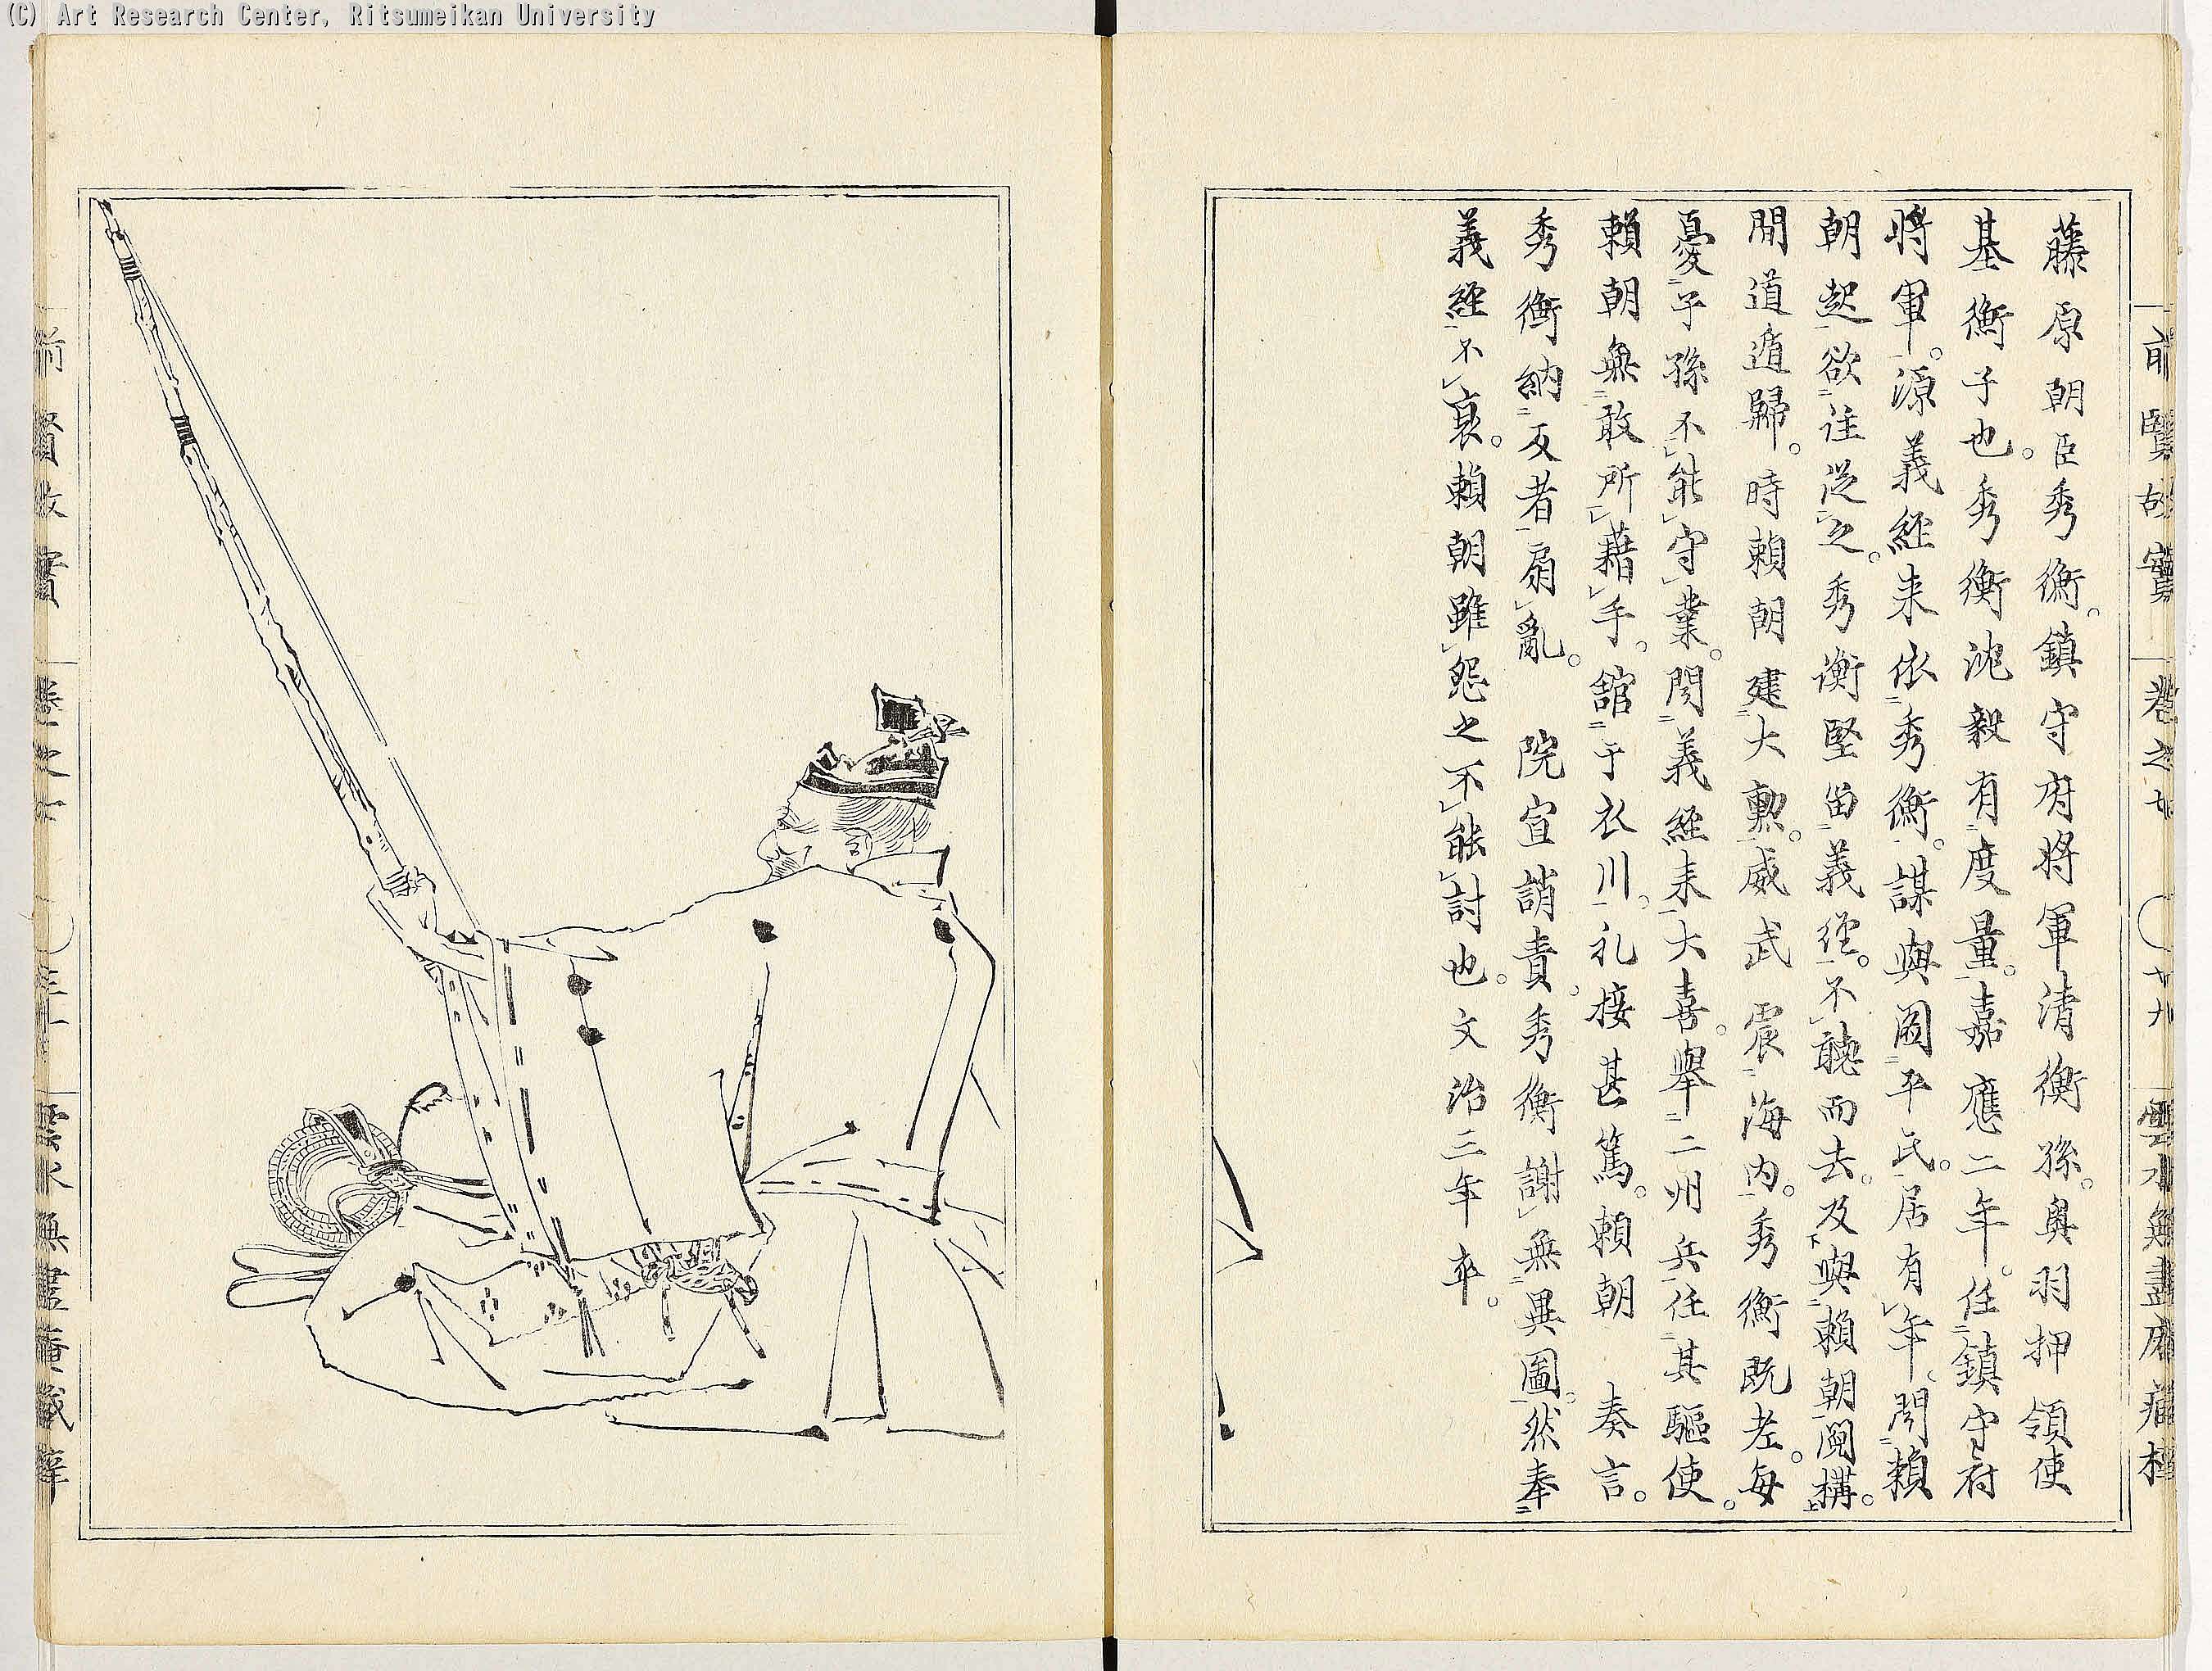 (C) Art Research Center, Ritsumeikan University
前賢故實 卷之七 廿九 雲水無盡庵藏梓
藤原朝臣秀衡。鎮守府將軍清衡孫。奧羽押領使
基衡子也。秀衡沈毅有度量。嘉應二年。任鎮守府
將軍。源義經来依秀衡。謀與圖平氏。居有年。聞賴
朝起欲往從之。秀衡堅留義經。不聽而去。及與賴朝鬩構。
間道遁歸。時賴朝建大勲。威武震海内。秀衡既老。每
憂子孫不能守業。聞義經来大喜。舉二州兵任其驅使。
賴朝無敢所藉手。舘于衣川。礼接甚篤。賴朝 奏言。
秀衡納反者扇亂。 院宣誚責。秀衡謝無異圖。然奉
義經不衰。賴朝雖怨之不能討也。文治三年卒。
前賢故實 卷之七 三十 雲水無盡庵藏梓